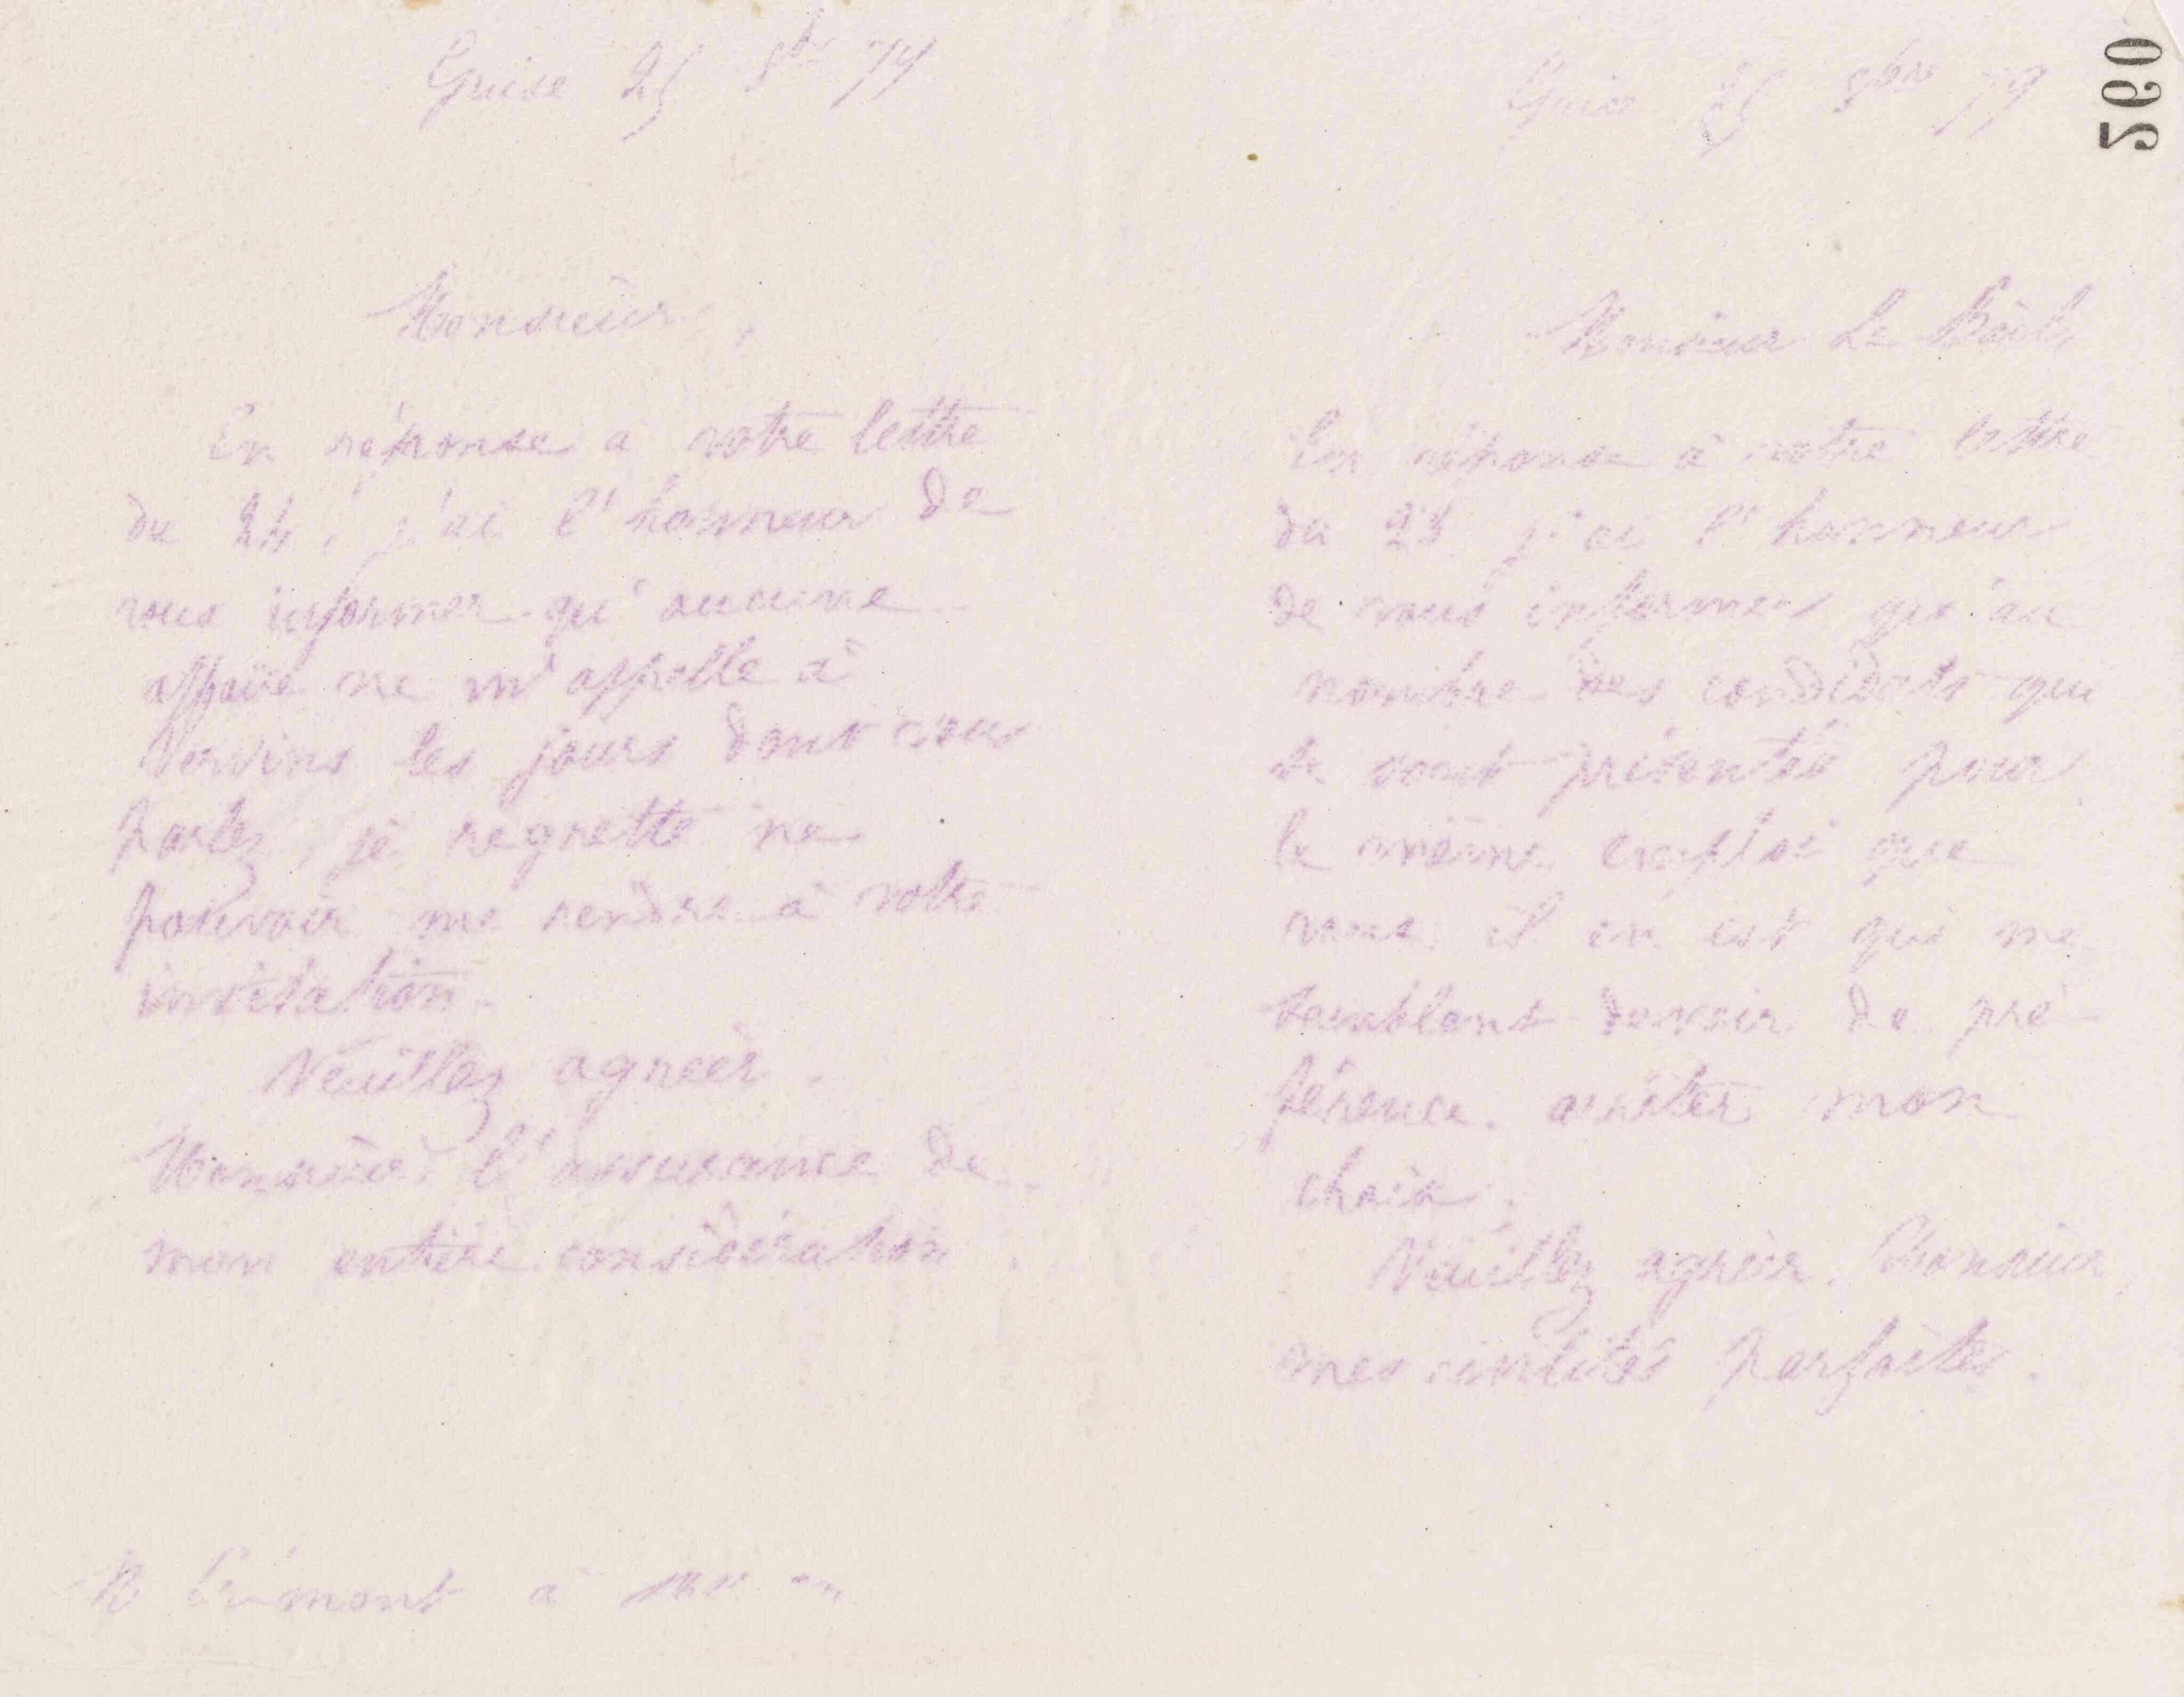 Guise 25 8bre 79
Monsieur,
En réponse a votre lettre
du 24, j'ai l'honneur de
vous informer qu'aucune
affaire ne m'appelle à
Vervins les jours dont vous
parlez, je regrette ne
pouvoir me rendre à votre
invitation.
Veuillez agréer,
Monsieur, l'assurance de
mon entière considération.
à
260
Guise 25 8bre 79
Monsieur Le
En réponse à votre lettre
du 23 j'ai l'honneur
de vous informer qu'au
nombre des candidats qui
se sont présentés pour
le même emploi que
vous il en est qui me
semblent devoir de pré-
férence arrêter mon
choix.
Veuillez agréer, Monsieur,
mes civilités parfaites.